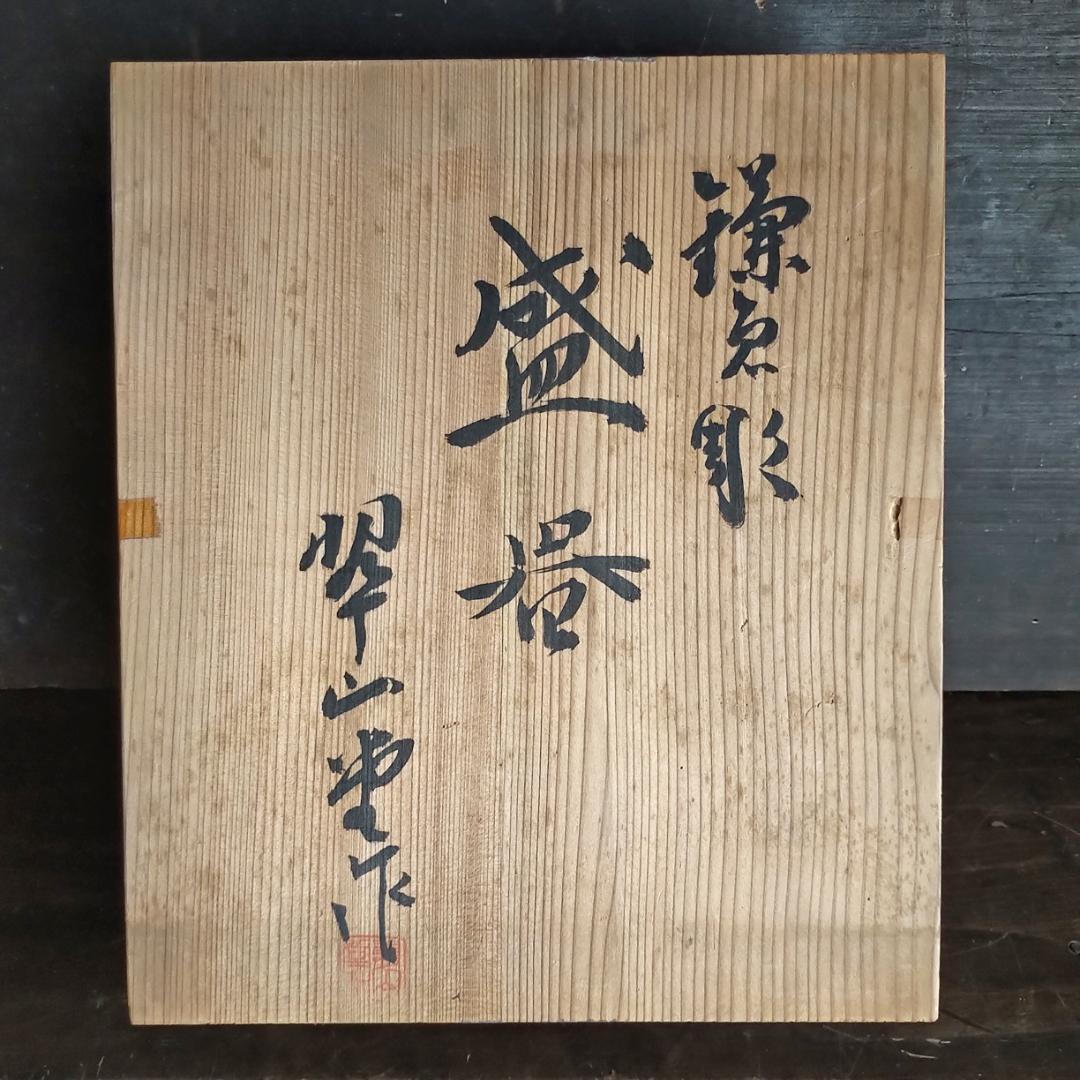 鎌倉彫
盛器
翠山堂作